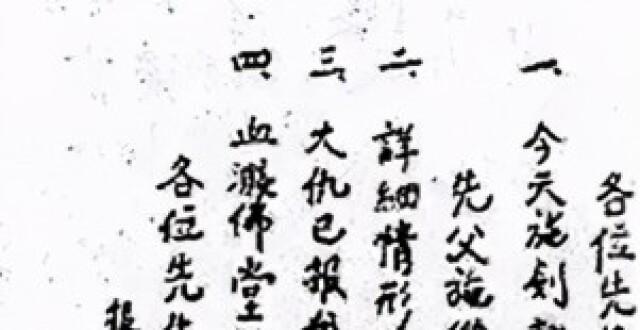 各位先
一、今天施剑
先父施
二、詳細情形
三、大仇已报
四、血溅佛堂
各位先生